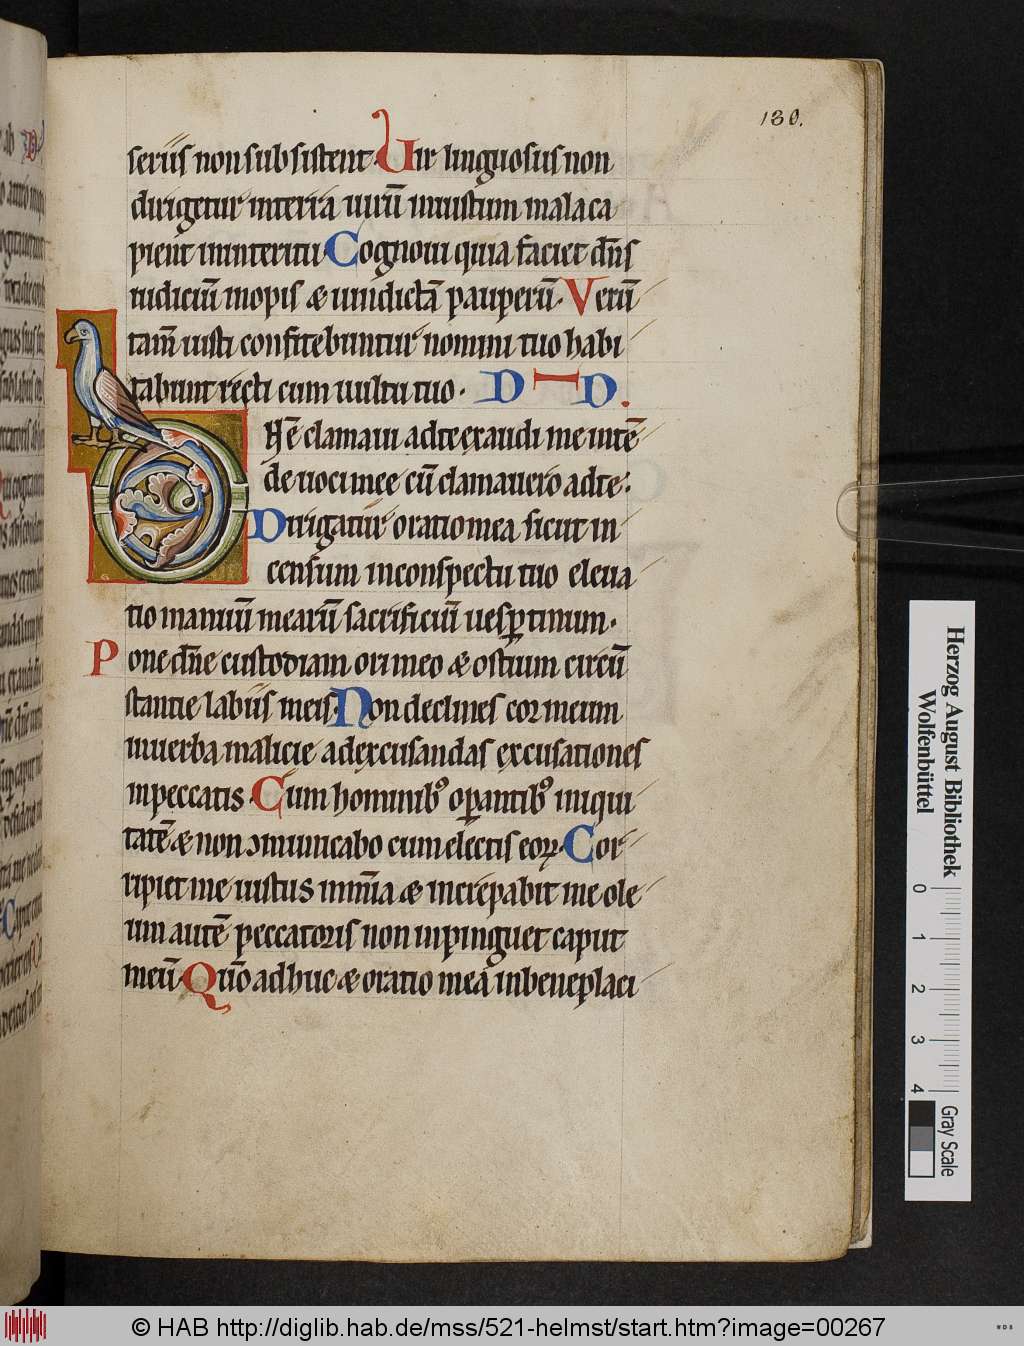 130.
seriis non subsistent· Vir linguosus non
dirigetur interra uirū iniustum mala ca
pient ininteritu· Cognoui quia faciet dn̄s
iudiciū inopis & uindictā pauperū· Verū
tam̄ iusti confitebuntur nomini tuo habi
tabunt recti cum uultu tuo· D D.
DNE̅ clamaui adte exaudi me inten̄
de uoci mee cū clamauero adte:
Dirigatur oratio mea sicut in
censum inconspectu tuo eleua
tio manuū mearū sacrificiū uesꝑtinum·
Pone dn̄e custodiam ori meo & ostium circū
stantie labiis meis· Non declines cor meum
inuerba malicie adexcusandas excusationes
inpeccatis· Cum hominibꝰ oꝑantibꝰ iniqui
tatē & non ɔmunicabo cum electis eoꝝ· Cor
ripiet me iustus inmīa & increpabit me ole
um autē peccatoris non inpinguet caput
meū· Qūo adhuc & oratio mea inbeneplaci
Herzog August Bibliothek
Wolfenbüttel
0 1 2 3 4
Gray Scale
© HAB http://diglib.hab.de/mss/521-helmst/start.htm?image=00267